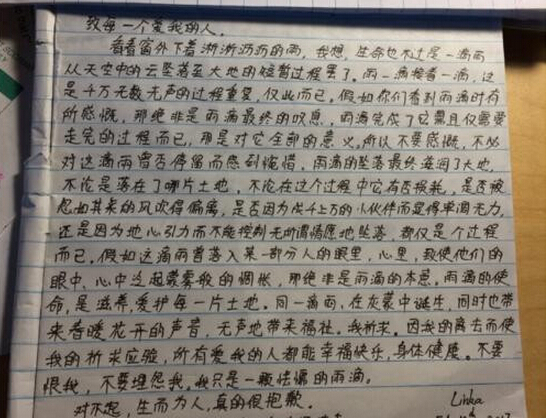 致每一个爱我的人，
看着窗外下着淅淅沥沥的雨，我想，生命也不过是一滴雨
从天空中的云坠落至大地的短暂过程罢了。雨一滴接着一滴，这
是千万无数无声的过程重复，仅此而已。假如你们看到雨滴时有
所感慨，那绝非是雨滴最终的叹息，雨滴完成了它需且仅需要
走完的过程而已，那是对它全部的意义。所以不要感慨，不必
对这滴雨曾否停留而感到惋惜。雨滴的坠落最终滋润了大地，
不论是落在了哪片土地，不论在这个过程中它有否损耗，是否被
忽如其来的风吹得偏离，是否因为成千上万的小伙伴而显得单调无力，
还是因为地心引力而不能控制无所谓情愿地坠落，都仅是个过程
而已。假如这滴雨曾落入某一部分人的眼里，心里，致使他们的
眼中、心中泛起蒙雾般的惆怅，那绝非是雨滴的本意。雨滴的使
命，是滋养，爱护每一片土地。同一滴雨，在灰蒙中诞生，同时也带
来春暖花开的声音，无声地带来福祉。我祈求，因我的离去而使
我的祈求应验，所有爱我的人都能幸福快乐，身体健康。不要
恨我，不要埋怨我，我只是一颗怯懦的雨滴。
对不起，生而为人，真的很抱歉。
Linka